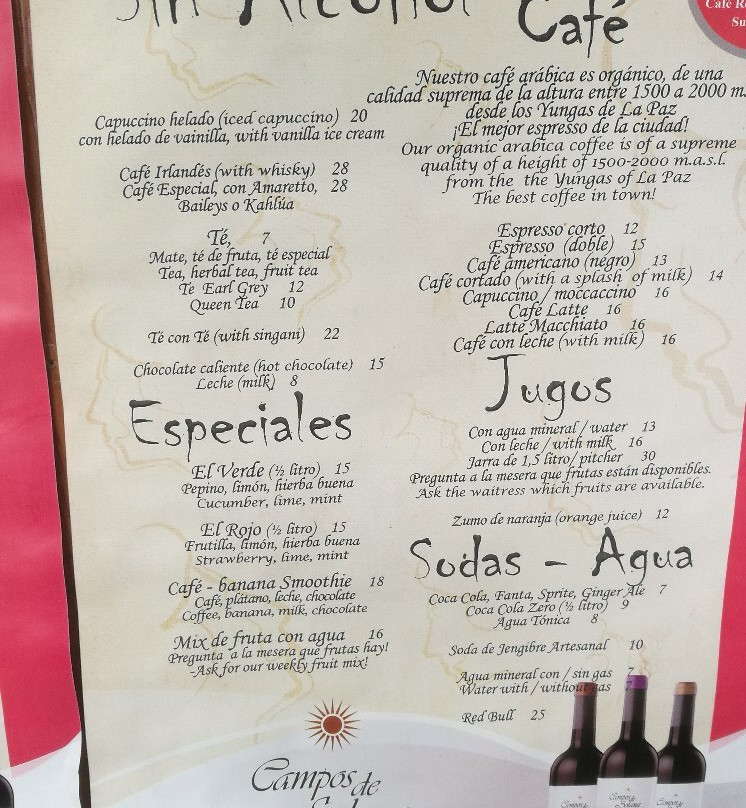 Sin Alcohol
Capuccino helado (iced capuccino) 20
con helado de vainilla, with vanilla ice cream
Café Irlandés (with whisky) 28
Café Especial, con Amaretto, 28
Baileys o Kahlúa
Té, 7
Mate, té de fruta, té especial
Tea, herbal tea, fruit tea
Te Earl Grey 12
Queen Tea 10
Té con Té (with singani) 22
Chocolate caliente (hot chocolate) 15
Leche (milk) 8
Especiales
El Verde (½ litro) 15
Pepino, limón, hierba buena
Cucumber, lime, mint
El Rojo (½ litro) 15
Frutilla, limón, hierba buena
Strawberry, lime, mint
Café - banana Smoothie 18
Café, plátano, leche, chocolate
Coffee, banana, milk, chocolate
Mix de fruta con agua 16
Pregunta a la mesera que frutas hay!
-Ask for our weekly fruit mix!
Campos de
Café
Nuestro café arábica es orgánico, de una
calidad suprema de la altura entre 1500 a 2000 m.
desde los Yungas de La Paz
¡El mejor espresso de la ciudad!
Our organic arabica coffee is of a supreme
quality of a height of 1500-2000 m.a.s.l.
from the the Yungas of La Paz
The best coffee in town!
Espresso corto 12
Espresso (doble) 15
Café americano (negro) 13
Café cortado (with a splash of milk) 14
Capuccino / moccaccino 16
Café Latte 16
Latte Macchiato 16
Café con leche (with milk) 16
Jugos
Con agua mineral / water 13
Con leche / with milk 16
Jarra de 1,5 litro/ pitcher 30
Pregunta a la mesera que frutas están disponibles.
Ask the waitress which fruits are available.
Zumo de naranja (orange juice) 12
Sodas - Agua
Coca Cola, Fanta, Sprite, Ginger Ale 7
Coca Cola Zero (½ litro) 9
Agua Tónica 8
Soda de Jengibre Artesanal 10
Agua mineral con / sin gas 7
Water with / without gas 7
Red Bull 25
Café